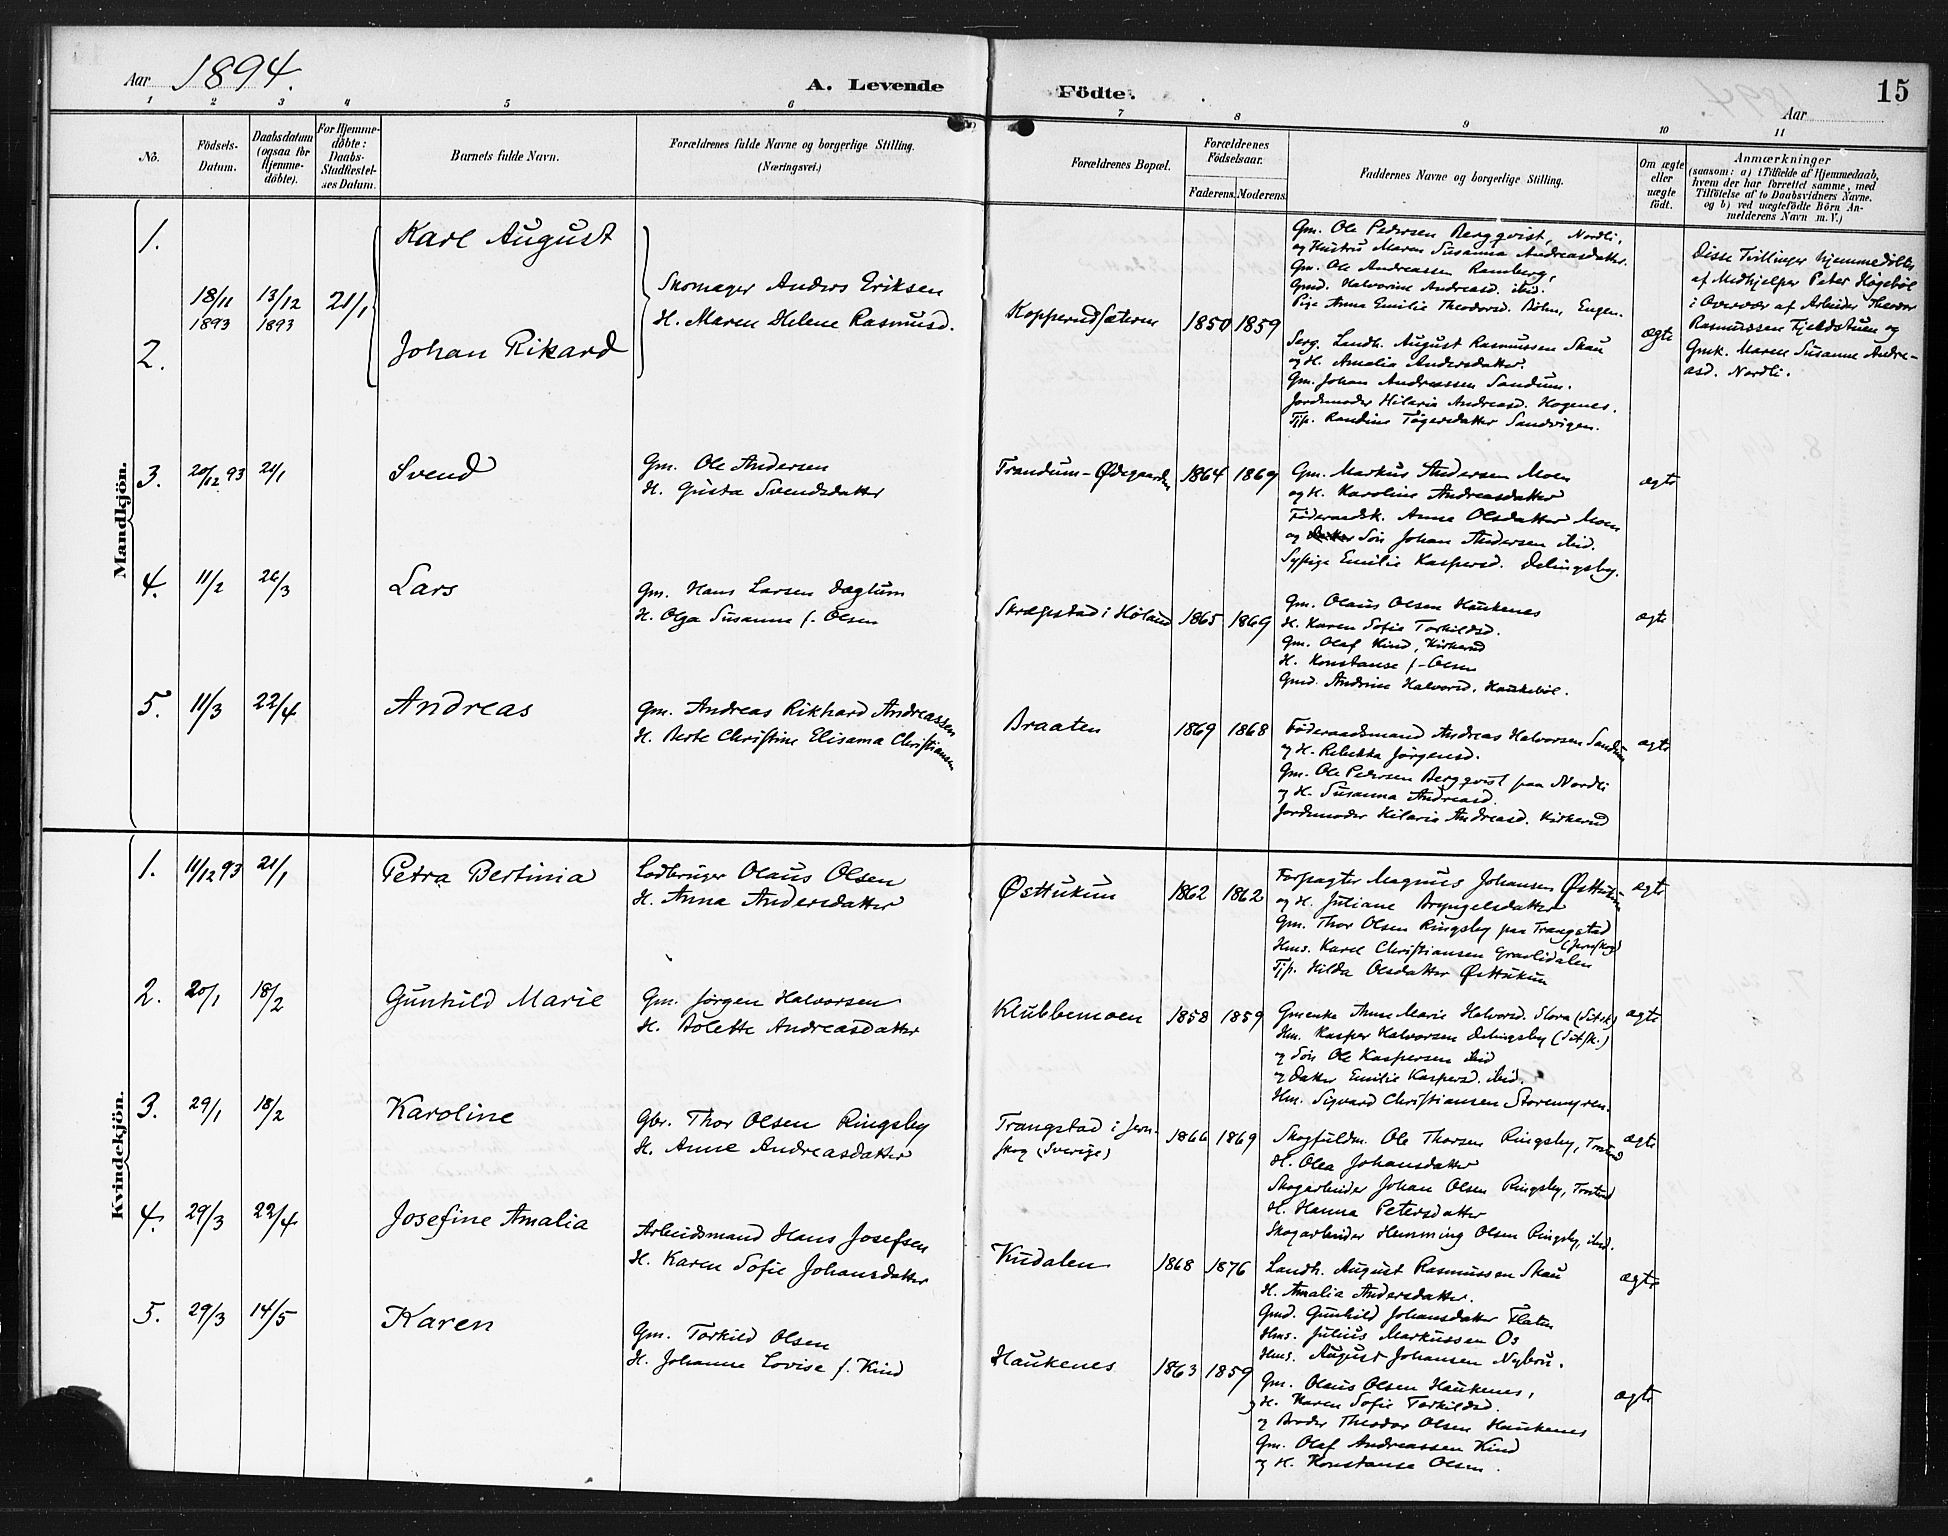 Aar 1894.
A. Levende Födte.
Aar
15
1 2 3 4 5 6 7 8 9 10 11
No.
Födsels-Datum.
Daabsdatum (ogsaa for Hjemme-döbte).
For Hjemme-döbte: Daabs-Stadfæstel-ses Datum.
Barnets fulde Navn.
Forældrenes fulde Navne og borgerlige Stilling.
(Næringsvei.)
Forældrenes Bopæl.
Forældrenes Födselsaar.
Faderens. Moderens.
Faddernes Navne og borgerlige Stilling.
Om ægte eller uægte födt.
Anmærkninger
(saasom: a) i Tilfælde af Hjemmedaab,
hvem der har forrettet samme, med
Tilföielse af to Daabsvidners Navne.
og b) ved uægtefödte Börn An-
melderens Navn m. V.)
Mandkjön.
1.
Karl August
2.
18/11 1893
13/12 1893
21/1
Johan Rikard
Skomager Anders Eriksen
H. Maren Helene Rasmusd.
Kopperudsæteren
1850 1859
Gm. Ole Pedersen Bergqvist, Nordli,
og Hustru Maren Susanna Andreasdatter.
Gm. Ole Andreassen Ramberg,
Gmd. Halvorine Andreasd. ibid.
Pige Anna Emilie Theodorsd. Böhn, Engen.
Serg. Landh. August Rasmussen Skau
og H. Amalia Andersdatter.
Gm. Johan Andreassen Sandum.
Jordemoder Hilaria Andreasd. Hogenes.
Tjp. Randine Tögersdatter Sandvigen.
ægte
Disse Tvillinger hjemmedöbtes
af Medhjelper Peter Högsböl
i Overvær af Arbeider Theodor
Rasmussen Fjeldstuen og
Gmk. Maren Susanne Andre-
asd. Nordli.
3. 20/12 93 21/1
Svend
Gm. Ole Andersen
H. Gusta Svendsdatter
Trandum-Ødegaarden
1864 1869
Gm. Markus Andersen Moen
og H. Karoline Andreasdatter
Föderaadsk. Anne Olsdatter Moen
og Sön Johan Andersen ibid.
Sypige Emilie Kaspersd. Delingsby.
ægte
4. 11/2 26/3
Lars
Gm. Hans Larsen Daglum
H. Olga Susanne f. Olsen
Skrægstad i Höland
1865 1869
Gm. Olaus Olsen Haukenes
H. Karen Sofie Torkildsd.
Gm. Olaf Kind, Kirkerud
H. Konstanse f. Olsen
Gmd. Andrine Halvorsd. Haukeböl.
ægte
5. 11/3 22/4
Andreas
Gm. Andreas Rikhard Andreassen
H. Berte Christine Elisama Christiansen
Braaten
1869 1868
Föderaadsmand Andreas Halvorsen Sandum
og H. Rebekka Jörgensd.
Gm. Ole Pedersen Bergqvist paa Nordli
og H. Susanna Andreasd.
Jordemoder Hilaria Andreasd. Kirkerud
ægte
Kvindekjön.
1. 11/12 93 21/1
Petra Bertinia
Ladbruger Olaus Olsen
H. Anna Andersdatter
Østtukun
1862 1862
Forpagter Magnus Johansen Østtukun
og H. Juliane Bryngelsdatter
Gm. Thor Olsen Ringsby paa Trangstad
(Jernskog)
Hms. Karel Christiansen Graalidalen
Tjp. Hilda Olsdatter Østtukun
ægte
2. 20/1 18/2
Gunhild Marie
Gm. Jørgen Halvorsen
H. Bolette Andreasdatter
Klubbemoen
1858 1859
Gmenke Anne Marie Halvorsd. Slora (Sitsk)
Hm. Kasper Halvorsen Delingsby (Sitsk.)
og Sön Ole Kaspersen ibid
og Datter Emilie Kaspersd. ibid.
Hm. Sigvard Christiansen Storemyren.
ægte
3. 29/1 18/2
Karoline
Gbr. Thor Olsen Ringsby
H. Anne Andreasdatter
Trangstad i Jern-
skog (Sverige)
1866 1869
Skogfuldm. Ole Thorsen Ringsby,
H. Olea Johansdatter
Skogarbeider Johan Olsen Ringsby,
H. Hanna Petersdatter
Skogarbeider Hemming Olsen Ringsby, ibid.
ægte
4. 29/3 22/4
Josefine Amalia
Arbeidsmand Hans Josefsen
H. Karen Sofie Johansdatter
Kudalen
1868 1876
Landh. August Rasmussen Skau
H. Amalia Andersdatter.
Gmd. Gunhild Johansdatter Flaten
Hms. Julius Markussen Os
Hms. August Johansen Nybru.
ægte
5. 29/3 14/5
Karen
Gm. Torkild Olsen
H. Johanne Lovise f. Kind
Haukenes
1863 1859
Gm. Olaus Olsen Haukenes,
og H. Karen Sofie Torkildsd.
og Broder Theodor Olsen Haukenes
Gm. Olaf Andreassen Kind
og H. Konstanse Olsen.
ægte